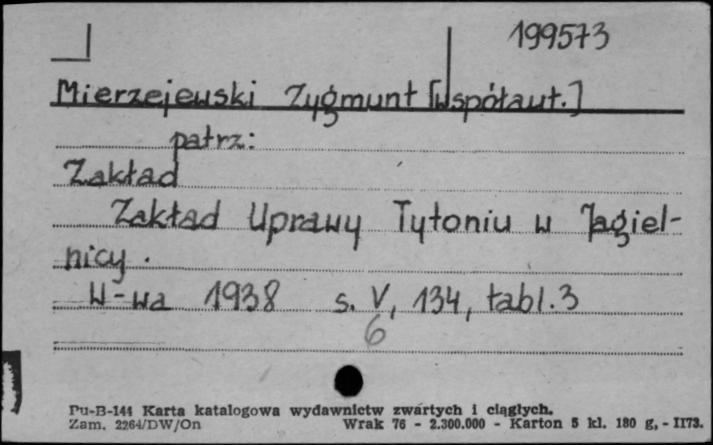 199573
Mierzejewski Zygmunt [współaut.]
patrz:
Zakład
Zakład Uprawy Tytoniu w Jagiel-
nicy.
W-wa 1938 s. V, 134, tabl. 3
6
Pu-B-144 Karta katalogowa wydawnictw zwartych i ciągłych.
Zam. 2264/DW/On Wrak 76 - 2.300.000 - Karton 5 kl. 180 g, - II73.